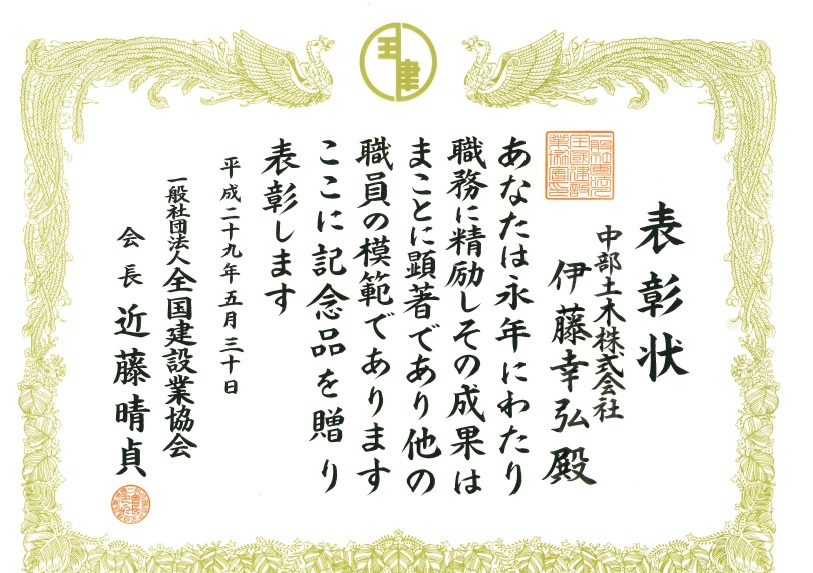 表彰状
中部土木株式会社
伊藤幸弘殿
あなたは永年にわたり
職務に精励しその成果は
まことに顕著であり他の
職員の模範であります
ここに記念品を贈り
表彰します
平成二十九年五月三十日
一般社団法人全国建設業協会
会長 近藤晴貞